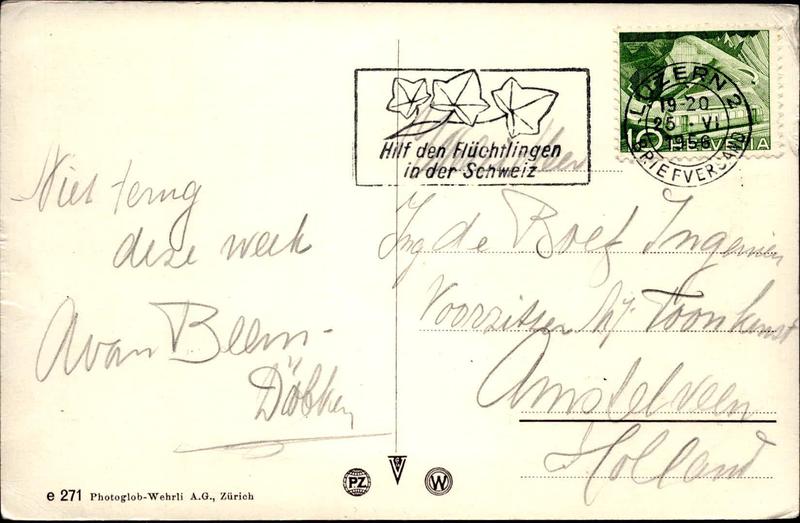 LUZERN 2
19-20
25·VI
1956
BRIEFVERSAND
10 HELVETIA
Hilf den Flüchtlingen
in der Schweiz
Niet terug
deze week
A van Beem-
Ing de Boef Ingenieur
Voorzitter Mij. Toonkunst
Amstelveen
Holland
PZ
W
e 271 Photoglob-Wehrli A.G., Zürich